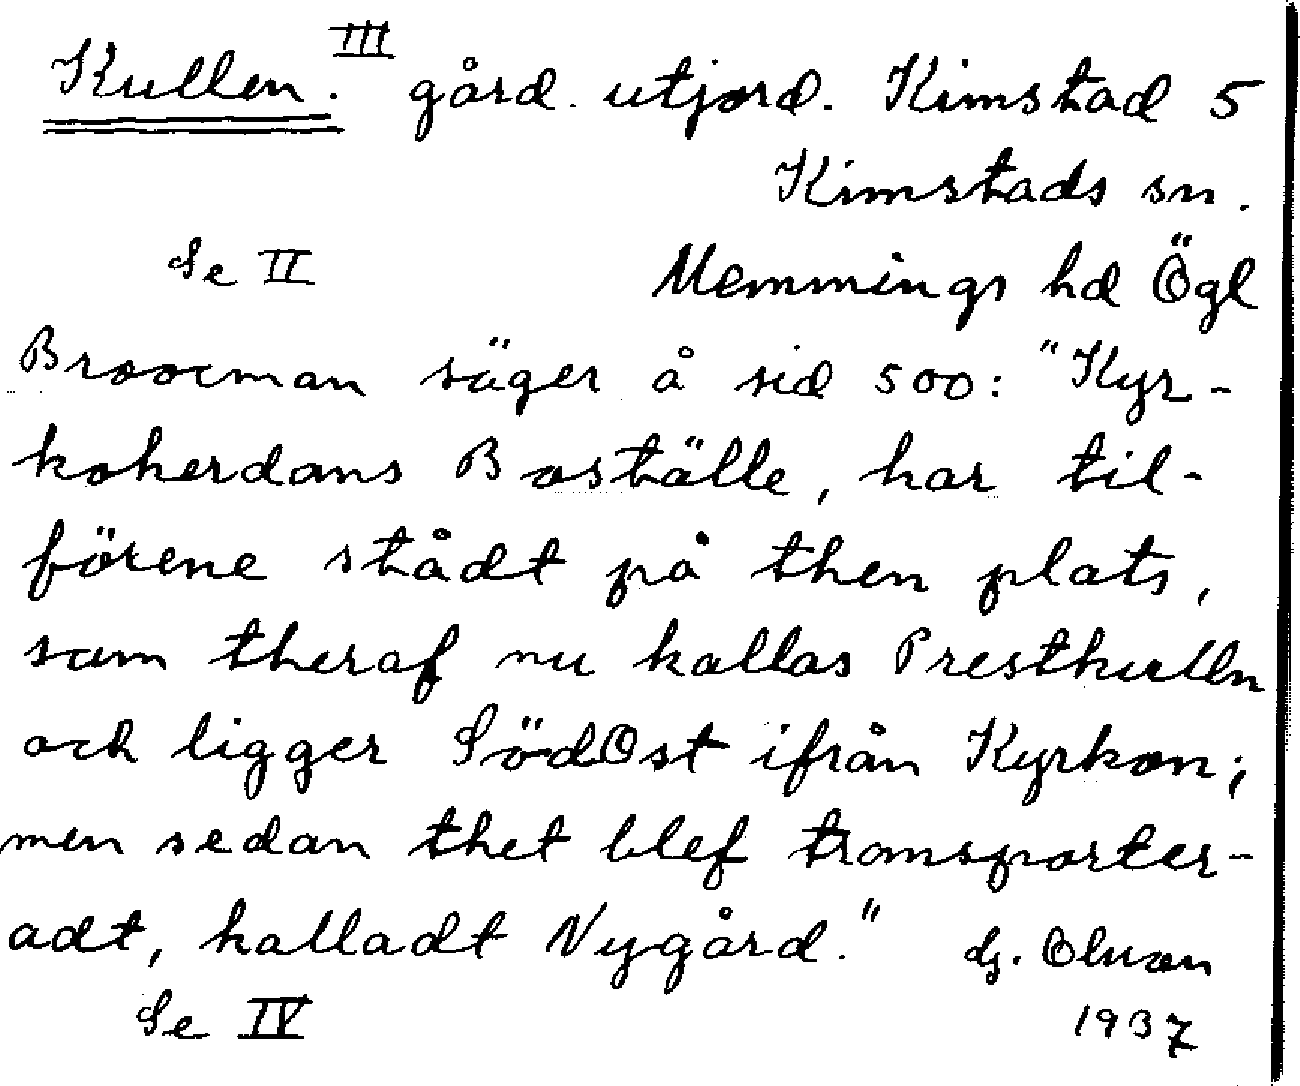 Kullen. III gård. utjord. Kimstad 5
Kimstads sn.
Se II Memmings hd Ögl
Broocman säger å sid 500: "Kyr-
koherdans Boställe, har til-
förene stådt på then plats,
som theraf nu kallas Prestkulln
och ligger SödOst ifrån Kyrkon;
men sedan thet blef transporter-
adt, kalladt Nygård." G. Olson
Se IV 1937